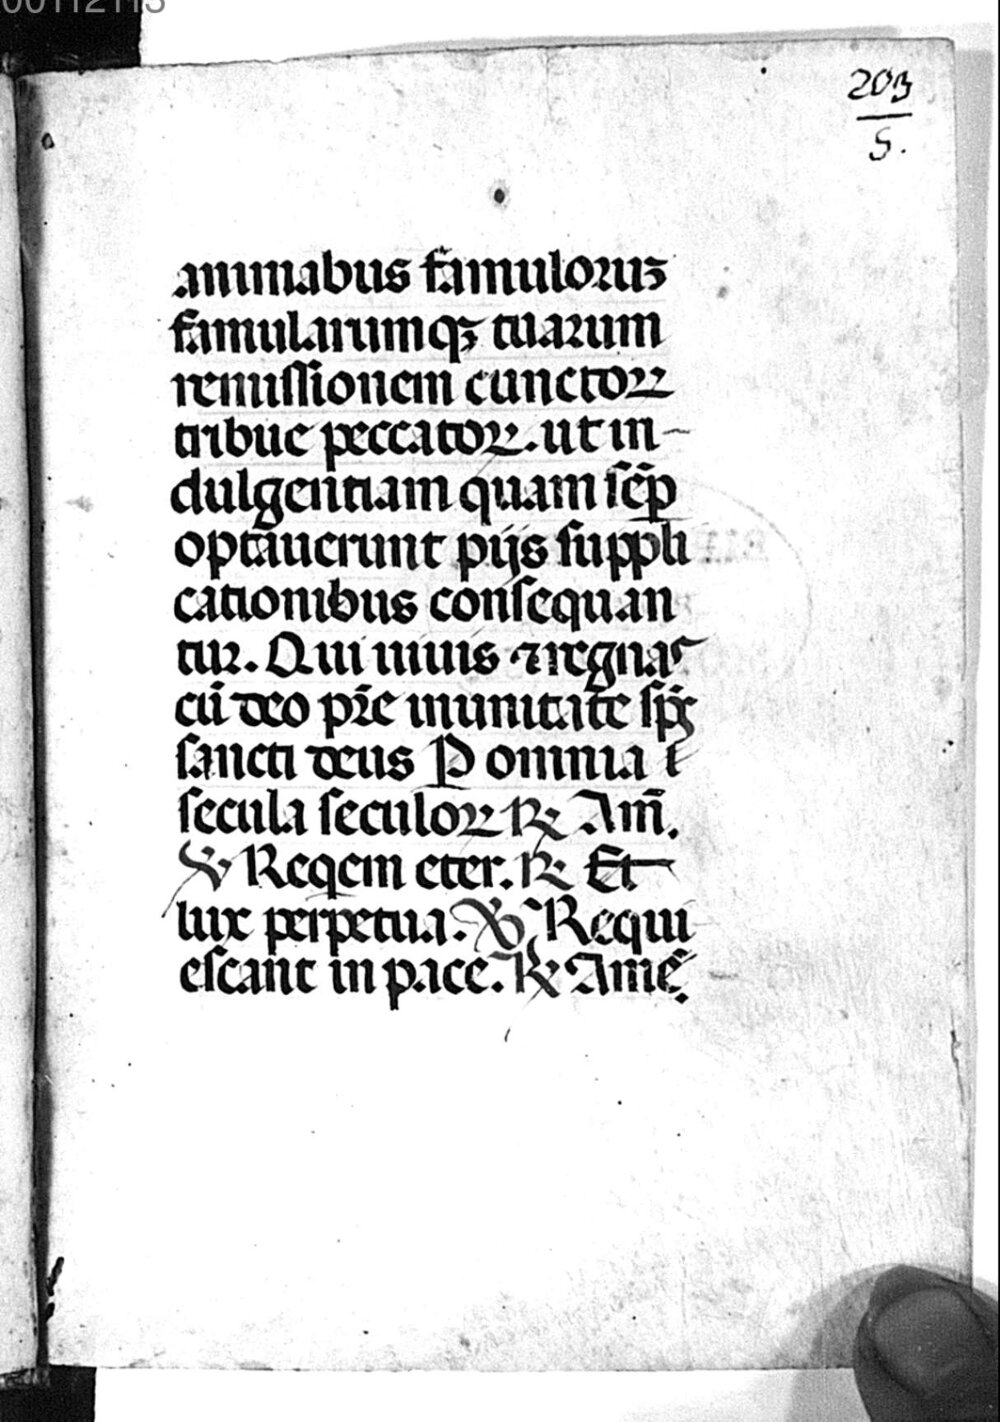 00112113
203
5.
animabus famuloruꝫ
famularumqꝫ tuarum
remissionem cunctoꝝ
tribue peccatoꝝ. ut in-
dulgentiam quam sēp
optauerunt pijs suppli
cationibus consequan
tur. Qui uiuis ⁊ regnas
cū deo pr̄e in unitate sp̄s
sancti deus P omnia
secula seculoꝝ ℟ Am̄.
℣ Reqem eter. ℟ Et
lux perpetua. ℣ Requi
escant in pace. ℟ Amē.